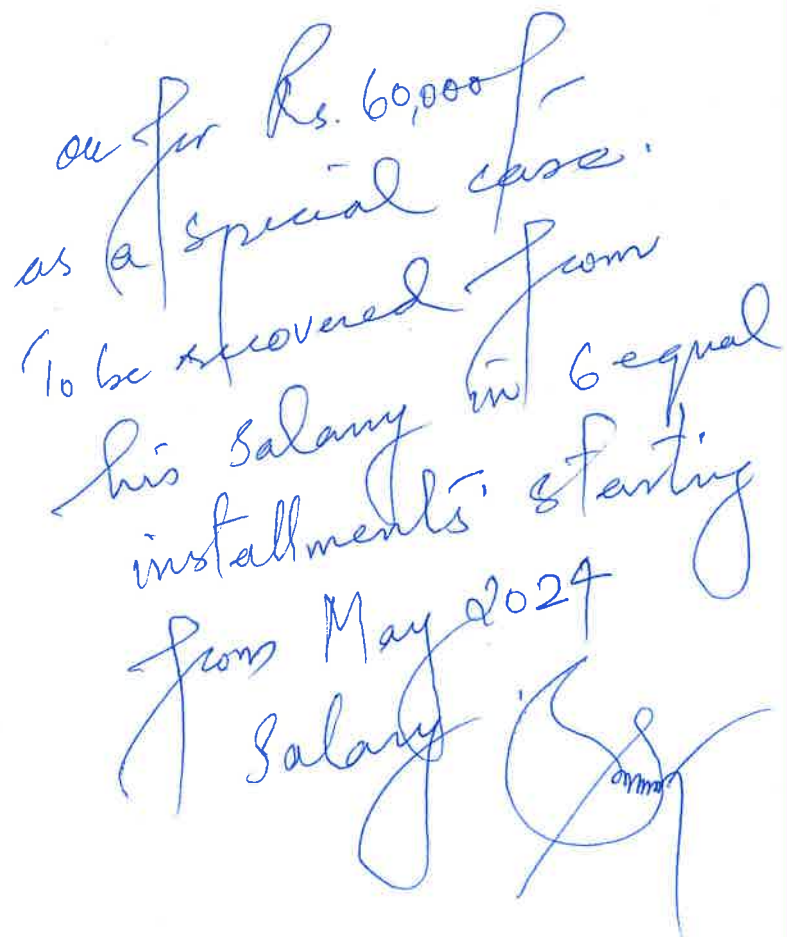 ok for Rs. 60,000/-
as a special case.
To be recovered from
his salary in 6 equal
installments starting
from May 2024
Salary